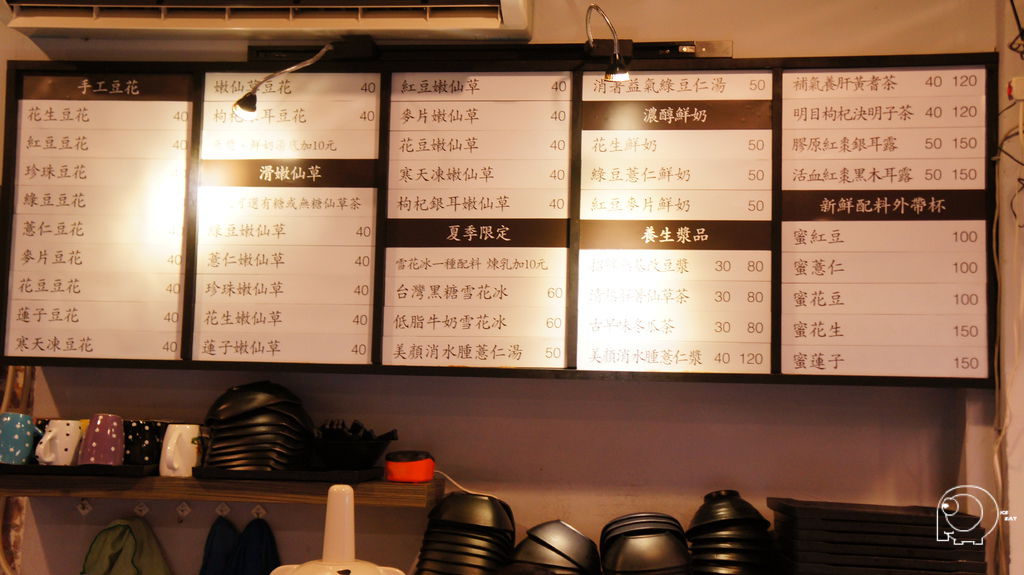 手工豆花
花生豆花 40
紅豆豆花 40
珍珠豆花
綠豆豆花
薏仁豆花 40
麥片豆花 40
花豆豆花 40
蓮子豆花 40
寒天凍豆花 40
嫩仙草豆花 40
枸杞銀耳豆花 40
鮮奶湯底加10元
滑嫩仙草
可選有糖或無糖仙草茶
綠豆嫩仙草 40
薏仁嫩仙草 40
珍珠嫩仙草 40
花生嫩仙草 40
蓮子嫩仙草 40
紅豆嫩仙草 40
麥片嫩仙草 40
花豆嫩仙草 40
寒天凍嫩仙草 40
枸杞銀耳嫩仙草 40
夏季限定
雪花冰一種配料 煉乳加10元
台灣黑糖雪花冰 60
低脂牛奶雪花冰 60
美顏消水腫薏仁湯 50
消暑益氣綠豆仁湯 50
濃醇鮮奶
花生鮮奶 50
綠豆薏仁鮮奶 50
紅豆麥片鮮奶 50
養生漿品
豆漿 30 80
仙草茶 30 80
古早味冬瓜茶 30 80
美顏消水腫薏仁漿 40 120
補氣養肝黃耆茶 40 120
明目枸杞決明子茶 40 120
膠原紅棗銀耳露 50 150
活血紅棗黑木耳露 50 150
新鮮配料外帶杯
蜜紅豆 100
蜜薏仁 100
蜜花豆 100
蜜花生 150
蜜蓮子 150